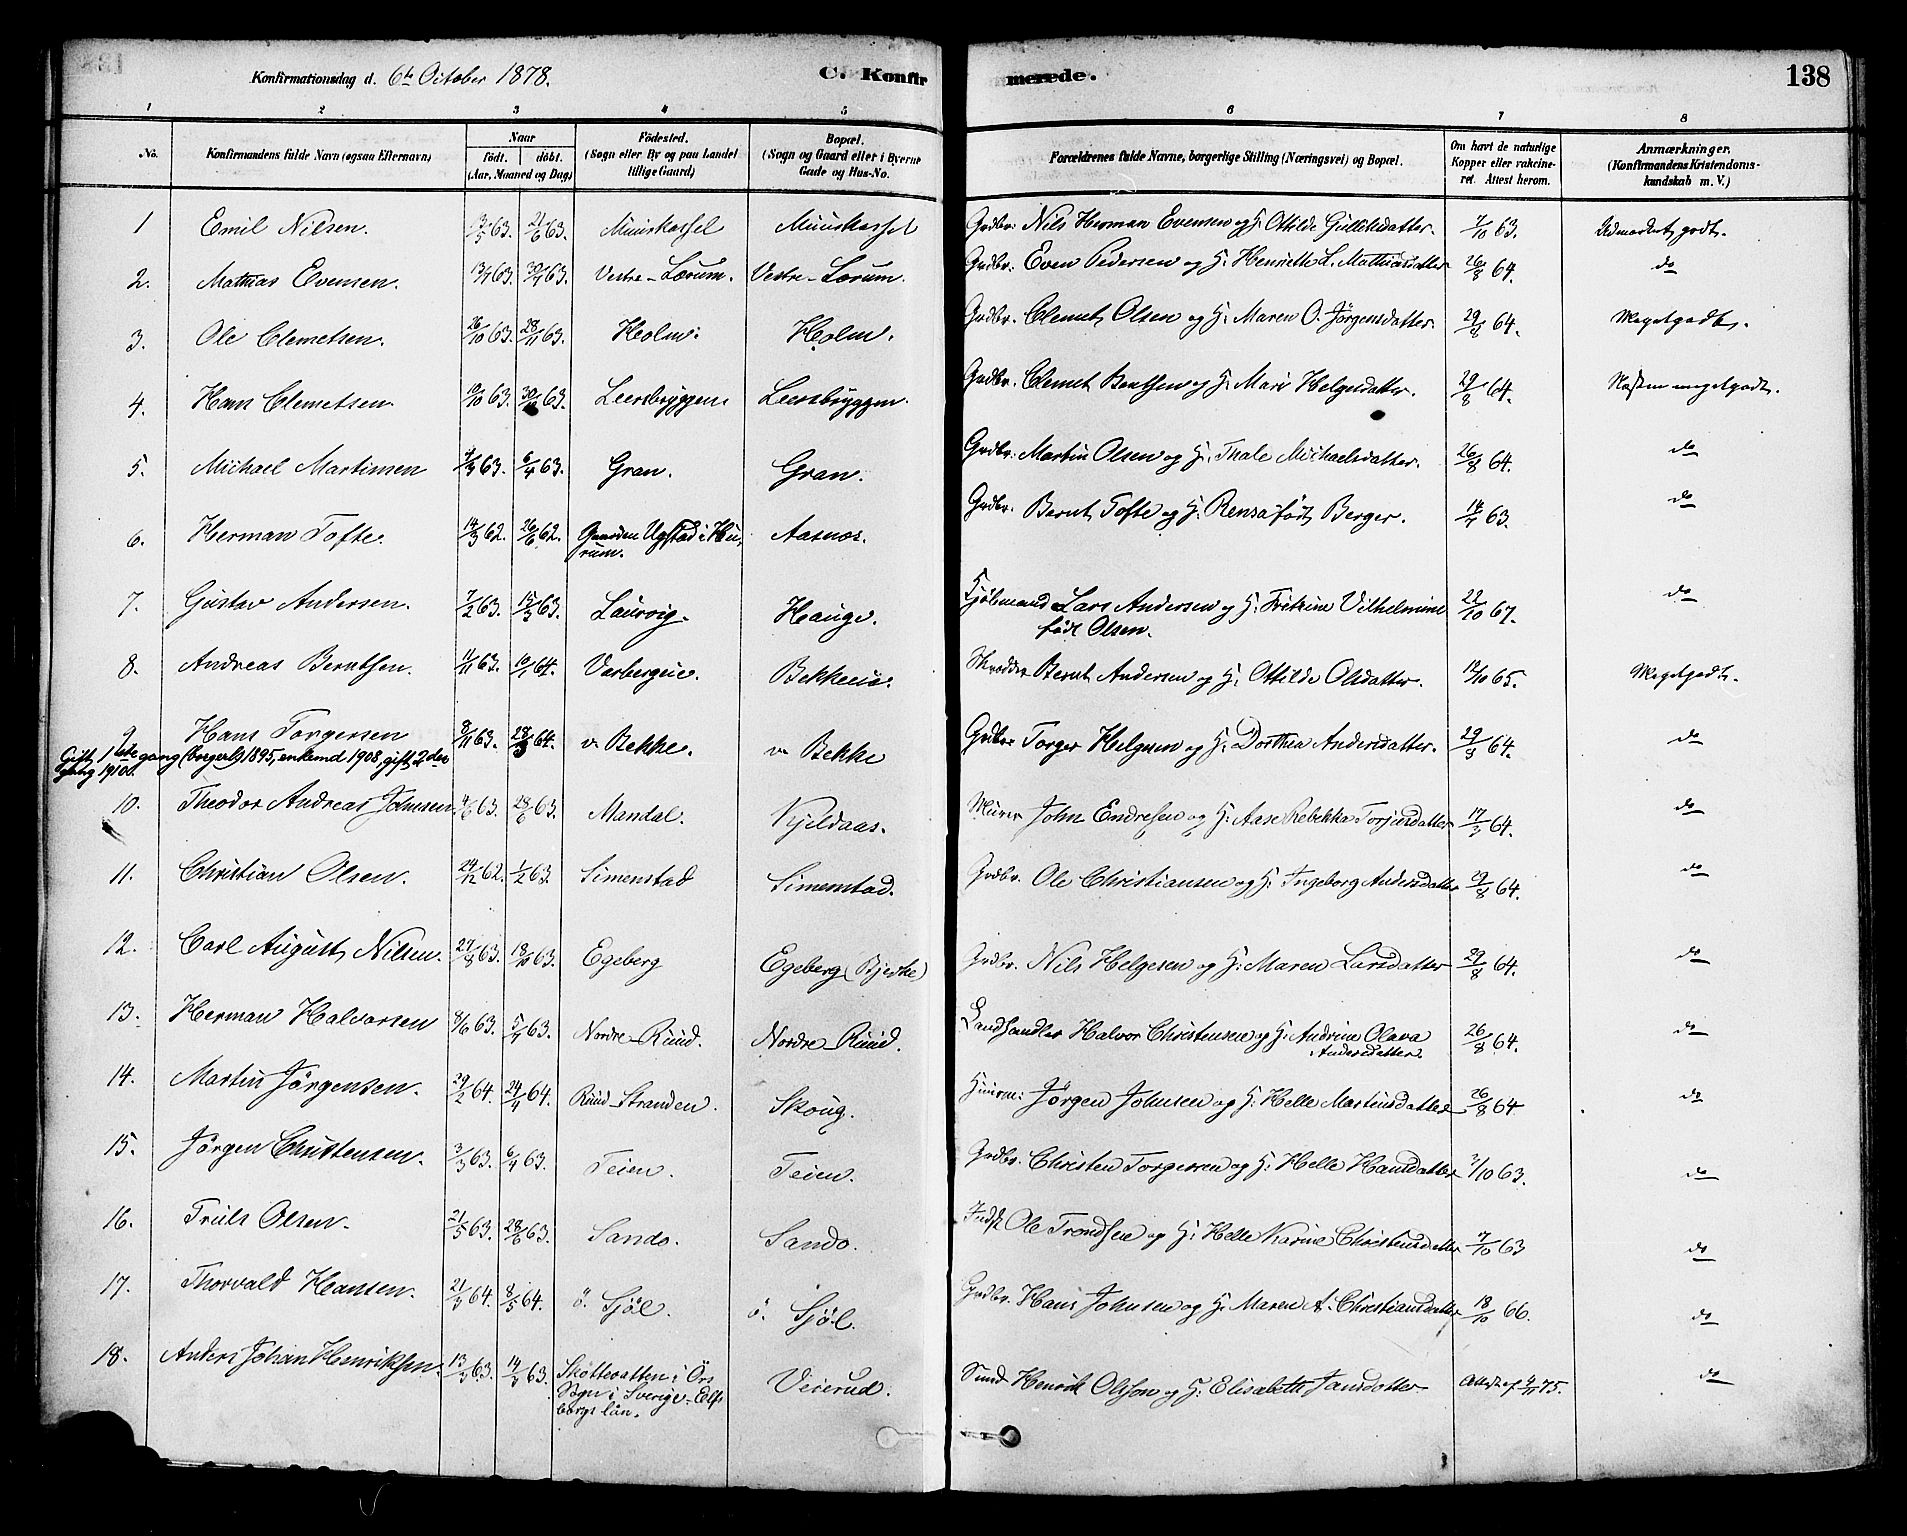 Konfirmationsdag d. 6te October 1878. C. Konfirmerede. 138
1 2 3 4 5 6 7 8
No. Konfirmandens fulde Navn (ogsaa Efternavn) Naar födt. döbt. (Aar, Maaned og Dag) Födested. (Sogn eller By og paa Landet tillige Gaard) Bopæl. (Sogn og Gaard eller i Byerne Gade og Hus-No. Forældrenes fulde Navne, borgerlige Stilling (Næringsvei) og Bopæl. Om havt de naturlige Kopper eller vakcineret. Attest herom. Anmærkninger. (Konfirmandens Kristendomskundskab m. V.)
1 Emil Nilsen. 63. 21/6 63. Muuskassel Muuskassel Grdbr. Nils Herman Evensen og H. Ottilde Gulliksdatter. 7/10 63. Udmærket godt.
2. Mathias Evensen. 13/7 63. 30/7 63. Vestre-Lærum. Vestre-Lærum. Grdbr. Even Pedersen og H. Henriette L. Mathiasdatter 26/8 64. do
3. Ole Clemetsen. 26/10 63. 28/11 63. Holm. Holm. Grdbr. Clemet Olsen og H. Maren O. Jörgensdatter. 29/8 64. Meget godt.
4. Hans Clemetsen. 19/10 63. 63. Leersbryggen Leersbryggen. Grdbr. Clemet Berthsen og H. Mari Helgesdatter. 29/8 64. Næsten meget godt.
5. Michael Martinsen 4/3 63. 6/4 63. Gran. Gran. Grdbr. Martin Olsen og H. Thale Michaelsdatter. 26/8 64. do
6. Herman Tofte. 14/3 62. 26/6 62. Gaarden Ugstad i Hurum. Aasnos. Grdbr. Bernt Tofte og H. Rensa födt Berger. 14/7 63. do
7. Gustav Andersen. 7/2 63. 15/3 63. Laurvig. Hauge. Lars Andersen og H. Vilhelmine födt Olsen. 22/10 67. do
8. Andreas Berntsen. 11/11 63. 10/1 64. Bekkeeie. Skrædder Bernt Andersen og H. Ottilde Olsdatter. 65. Meget godt.
9 Hans Torgersen 8/11 63. 28/3 64. v. Bekke. v. Bekke Grdbr Torger Helgesen og H. Dorthea Andersdatter. 29/8 64. do
Gift 1ste gang (borgerl.) 1895, enkemd 1908, gift 2den gang 1910.
10. Theodor Andreas Johnsen. 4/6 63. 28/6 63. Mandal. Kjildaas. Murer John Endresen og H. Aase Rebekka Torjusdatter 17/3 64. do
11. Christian Olsen. 24/12 62. 1/2 63. Simenstad Simenstad. Grdbr. Ole Christiansen og H. Ingeborg Andersdatter 29/8 64. do
12. Carl August Nilsen. 27/8 63. 18/10 63. Egeberg Egeberg (Bjerke) Grdbr. Nils Helgesen og H. Maren Larsdatter 29/8 64. do
13. Herman Halvorsen 8/6 63. 5/7 63. Nordre-Ruud. Nordre-Ruud. Landhandler Halvor Christensen og H. Andrine Olava Andersdatter. 26/8 64. do
14. Martin Jörgensen. 29/2 64. 24/4 64. Ruud-Stranden. Skoug. Huusm. Jörgen Johnsen og H. Helle Martinsdatter 26/8 64 do
15. Jörgen Christensen. 3/3 63. 6/4 63. Teien. Teien. Grdbr. Christen Torgersen og H. Helle Hansdatter 7/10 63. do
16. Truls Olsen. 21/5 63. 28/6 63. Sando. Sando. Indst Ole Trondsen og H. Helle Karine Christensdatter 7/10 63 do
17. Thorvald Hansen. 21/3 64. 8/5 64. ö. Sjöl. ö. Sjöl. Grdbr. Hans Johnsen og H. Maren A. Christiansdatter 18/10 66. do
18. Anders Johan Henriksen. 13/3 63. 14/3 63. Skottevatten i Örs Sogn i Sverige-Elfsborgs län. Veierud. Smed Henrik Olsson og H. Elisabeth Jansdotter Attest af 4/11 75. do